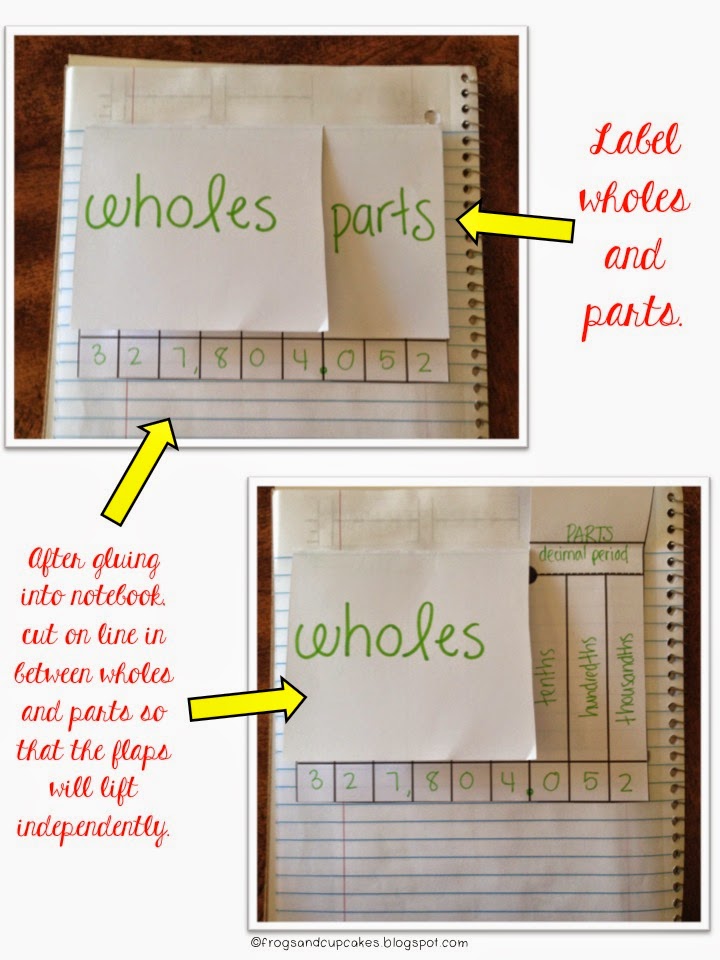 wholes parts
3 2 7, 8 0 4.0 5 2
Label
wholes
and
parts.
After gluing
into notebook,
cut on line in
between wholes
and parts so
that the flaps
will lift
independently.
PARTS
decimal period
wholes
tenths
hundredths
thousandths
3 2 7, 8 0 4.0 5 2
©frogsandcupcakes.blogspot.com